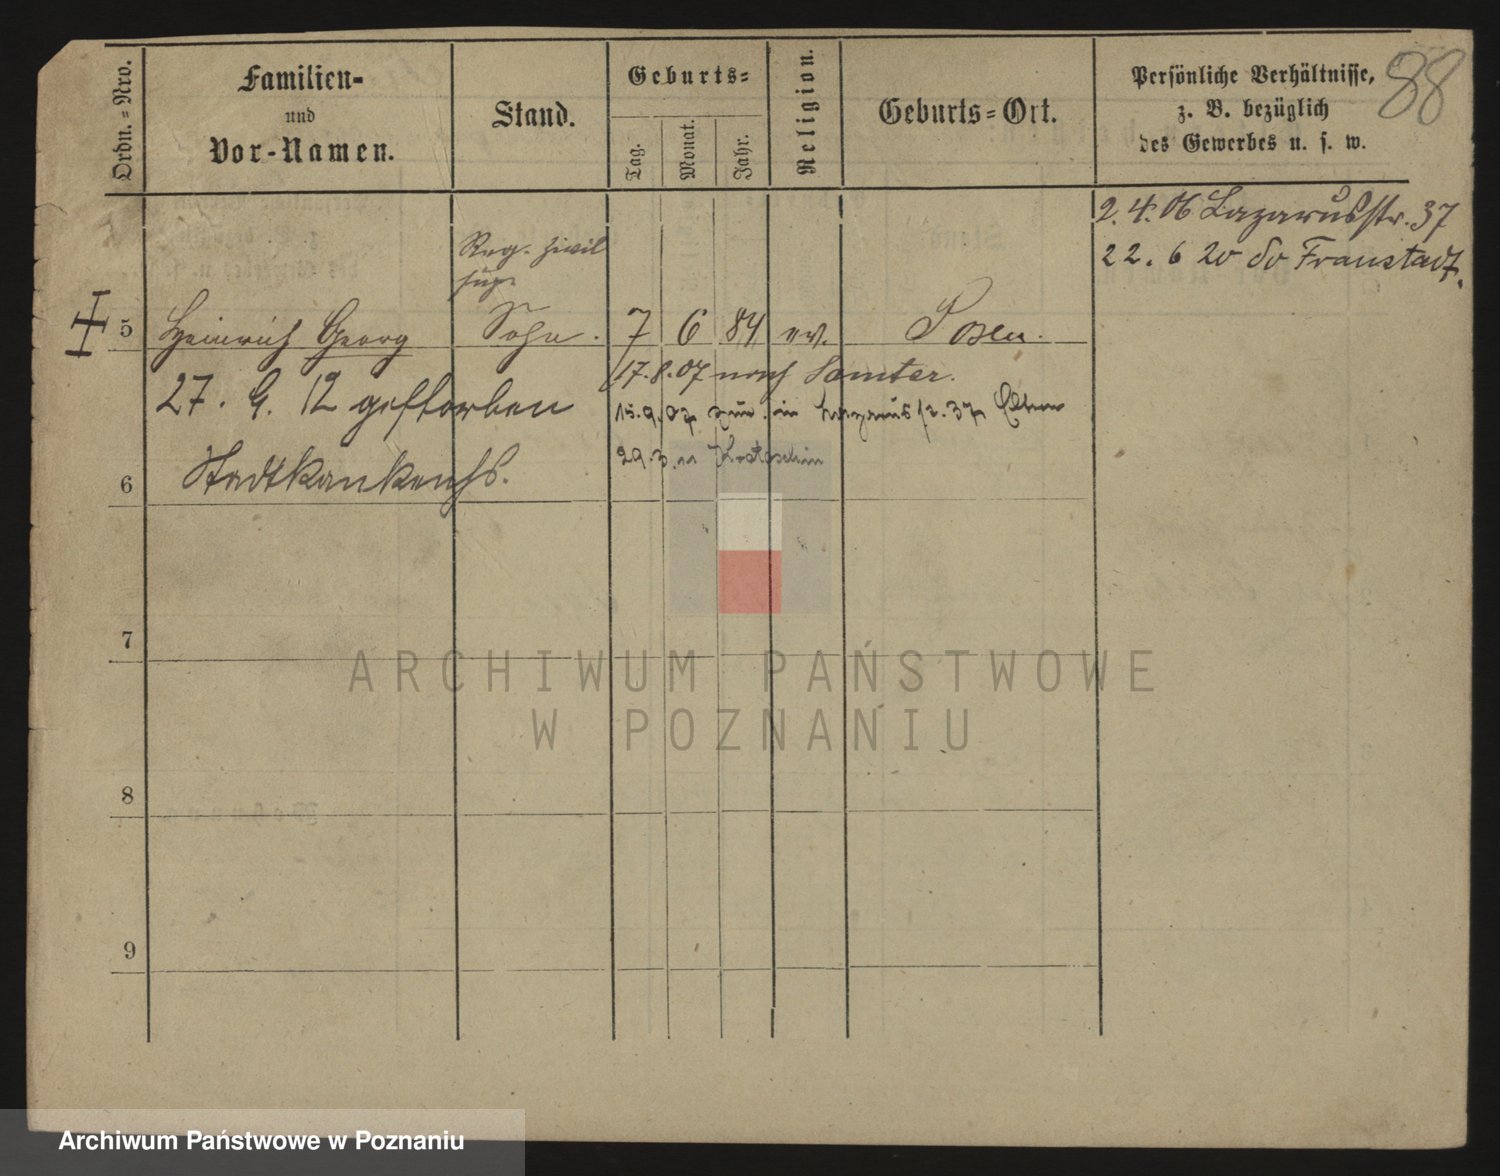 88
Ordn.=Nro.
Familien-
und
Vor-Namen.
Stand.
Geburts=
Tag.
Monat.
Jahr.
Religion.
Geburts=Ort.
Persönliche Verhältnisse,
z. B. bezüglich
des Gewerbes u. s. w.
2. 4. 06 Lazarusstr. 37
22. 6 20 do Fraustadt.
Reg. Zivil
5 Heinrich Georg Sohn. 7 6 84 ev. Posen.
17.8.07 nach Samter.
27. 9. 12 gestorben
15.9.07 zur. in Lazarusstr. 37 Eltern
29.3.11 Krotoschin
6 Stadtkrankenhs.
7
8
9
ARCHIWUM PAŃSTWOWE
W POZNANIU
Archiwum Państwowe w Poznaniu